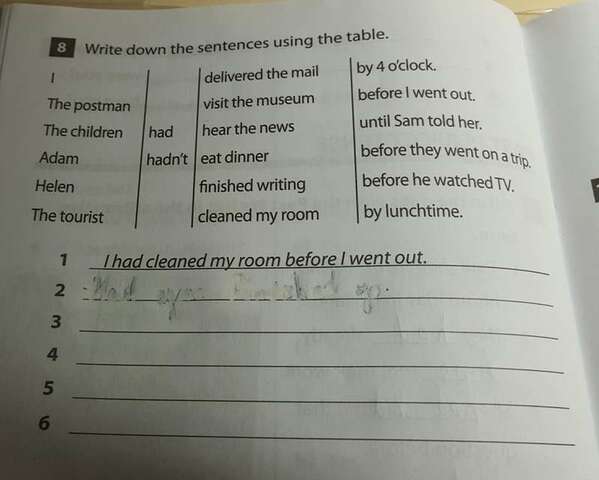 8 Write down the sentences using the table.
I delivered the mail by 4 o'clock.
The postman visit the museum before I went out.
The children had hear the news until Sam told her.
Adam hadn't eat dinner before they went on a trip.
Helen finished writing before he watched TV.
The tourist cleaned my room by lunchtime.
1 I had cleaned my room before I went out.
2
3
4
5
6